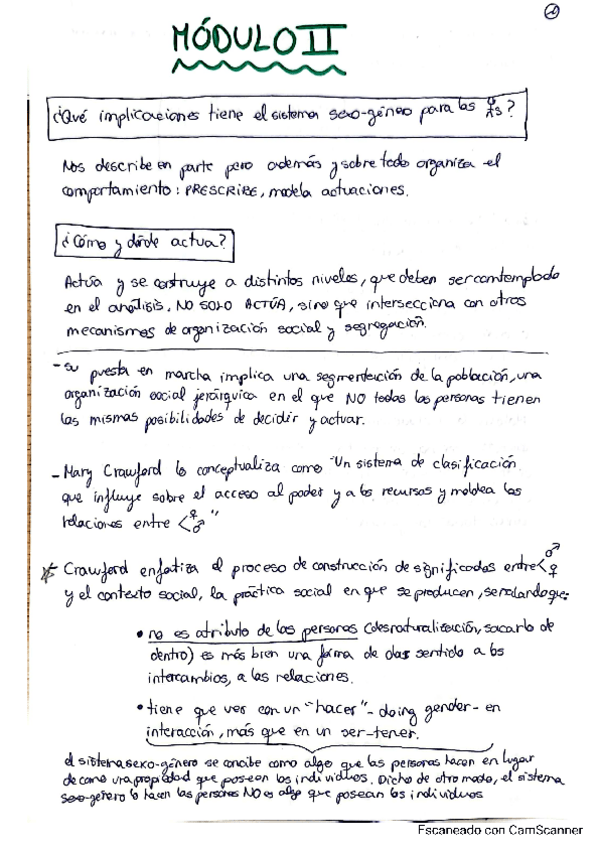 ②
MÓDULO II
¿Qué implicaciones tiene el sistema sexo-género para las s?
Nos describe en parte pero además y sobre todo organiza el
comportamiento: PRESCRIBE, modela actuaciones.
¿Cómo y dónde actua?
Actúa y se construye a distintos niveles, que deben ser contemplado
en el análisis. NO SOLO ACTÚA, sino que intersecciona con otros
mecanismos de organización social y segregación.
- Su puesta en marcha implica una segmentación de la población, una
organización social jerárquica en el que NO todas las personas tienen
las mismas posibilidades de decidir y actuar.
- Mary Crawford lo conceptualiza como "Un sistema de clasificación
que influye sobre el acceso al poder y a los recursos y moldea las
relaciones entre < ♀ ♂ "
* Crawford enfatiza el proceso de construcción de significados entre < ♂ ♀
y el contexto social, la práctica social en que se producen, señalando que:
• no es atributo de las personas (desnaturalización, sacarlo de
dentro) es más bien una forma de dar sentido a los
intercambios, a las relaciones.
• tiene que ver con un "hacer" - doing gender - en
interacción, más que en un ser-tener.
el sistema sexo-género se concibe como algo que las personas hacen en lugar
de como una propiedad que posean los individuos. Dicho de otro modo, el sistema
sexo-género lo hacen las personas NO es algo que posean los individuos
Escaneado con CamScanner